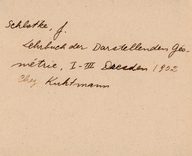 Schlotke, J.
Lehrbuch der Darstellenden Geo-
métrie, I-III Dresden 1902
Chez Kuhtmann